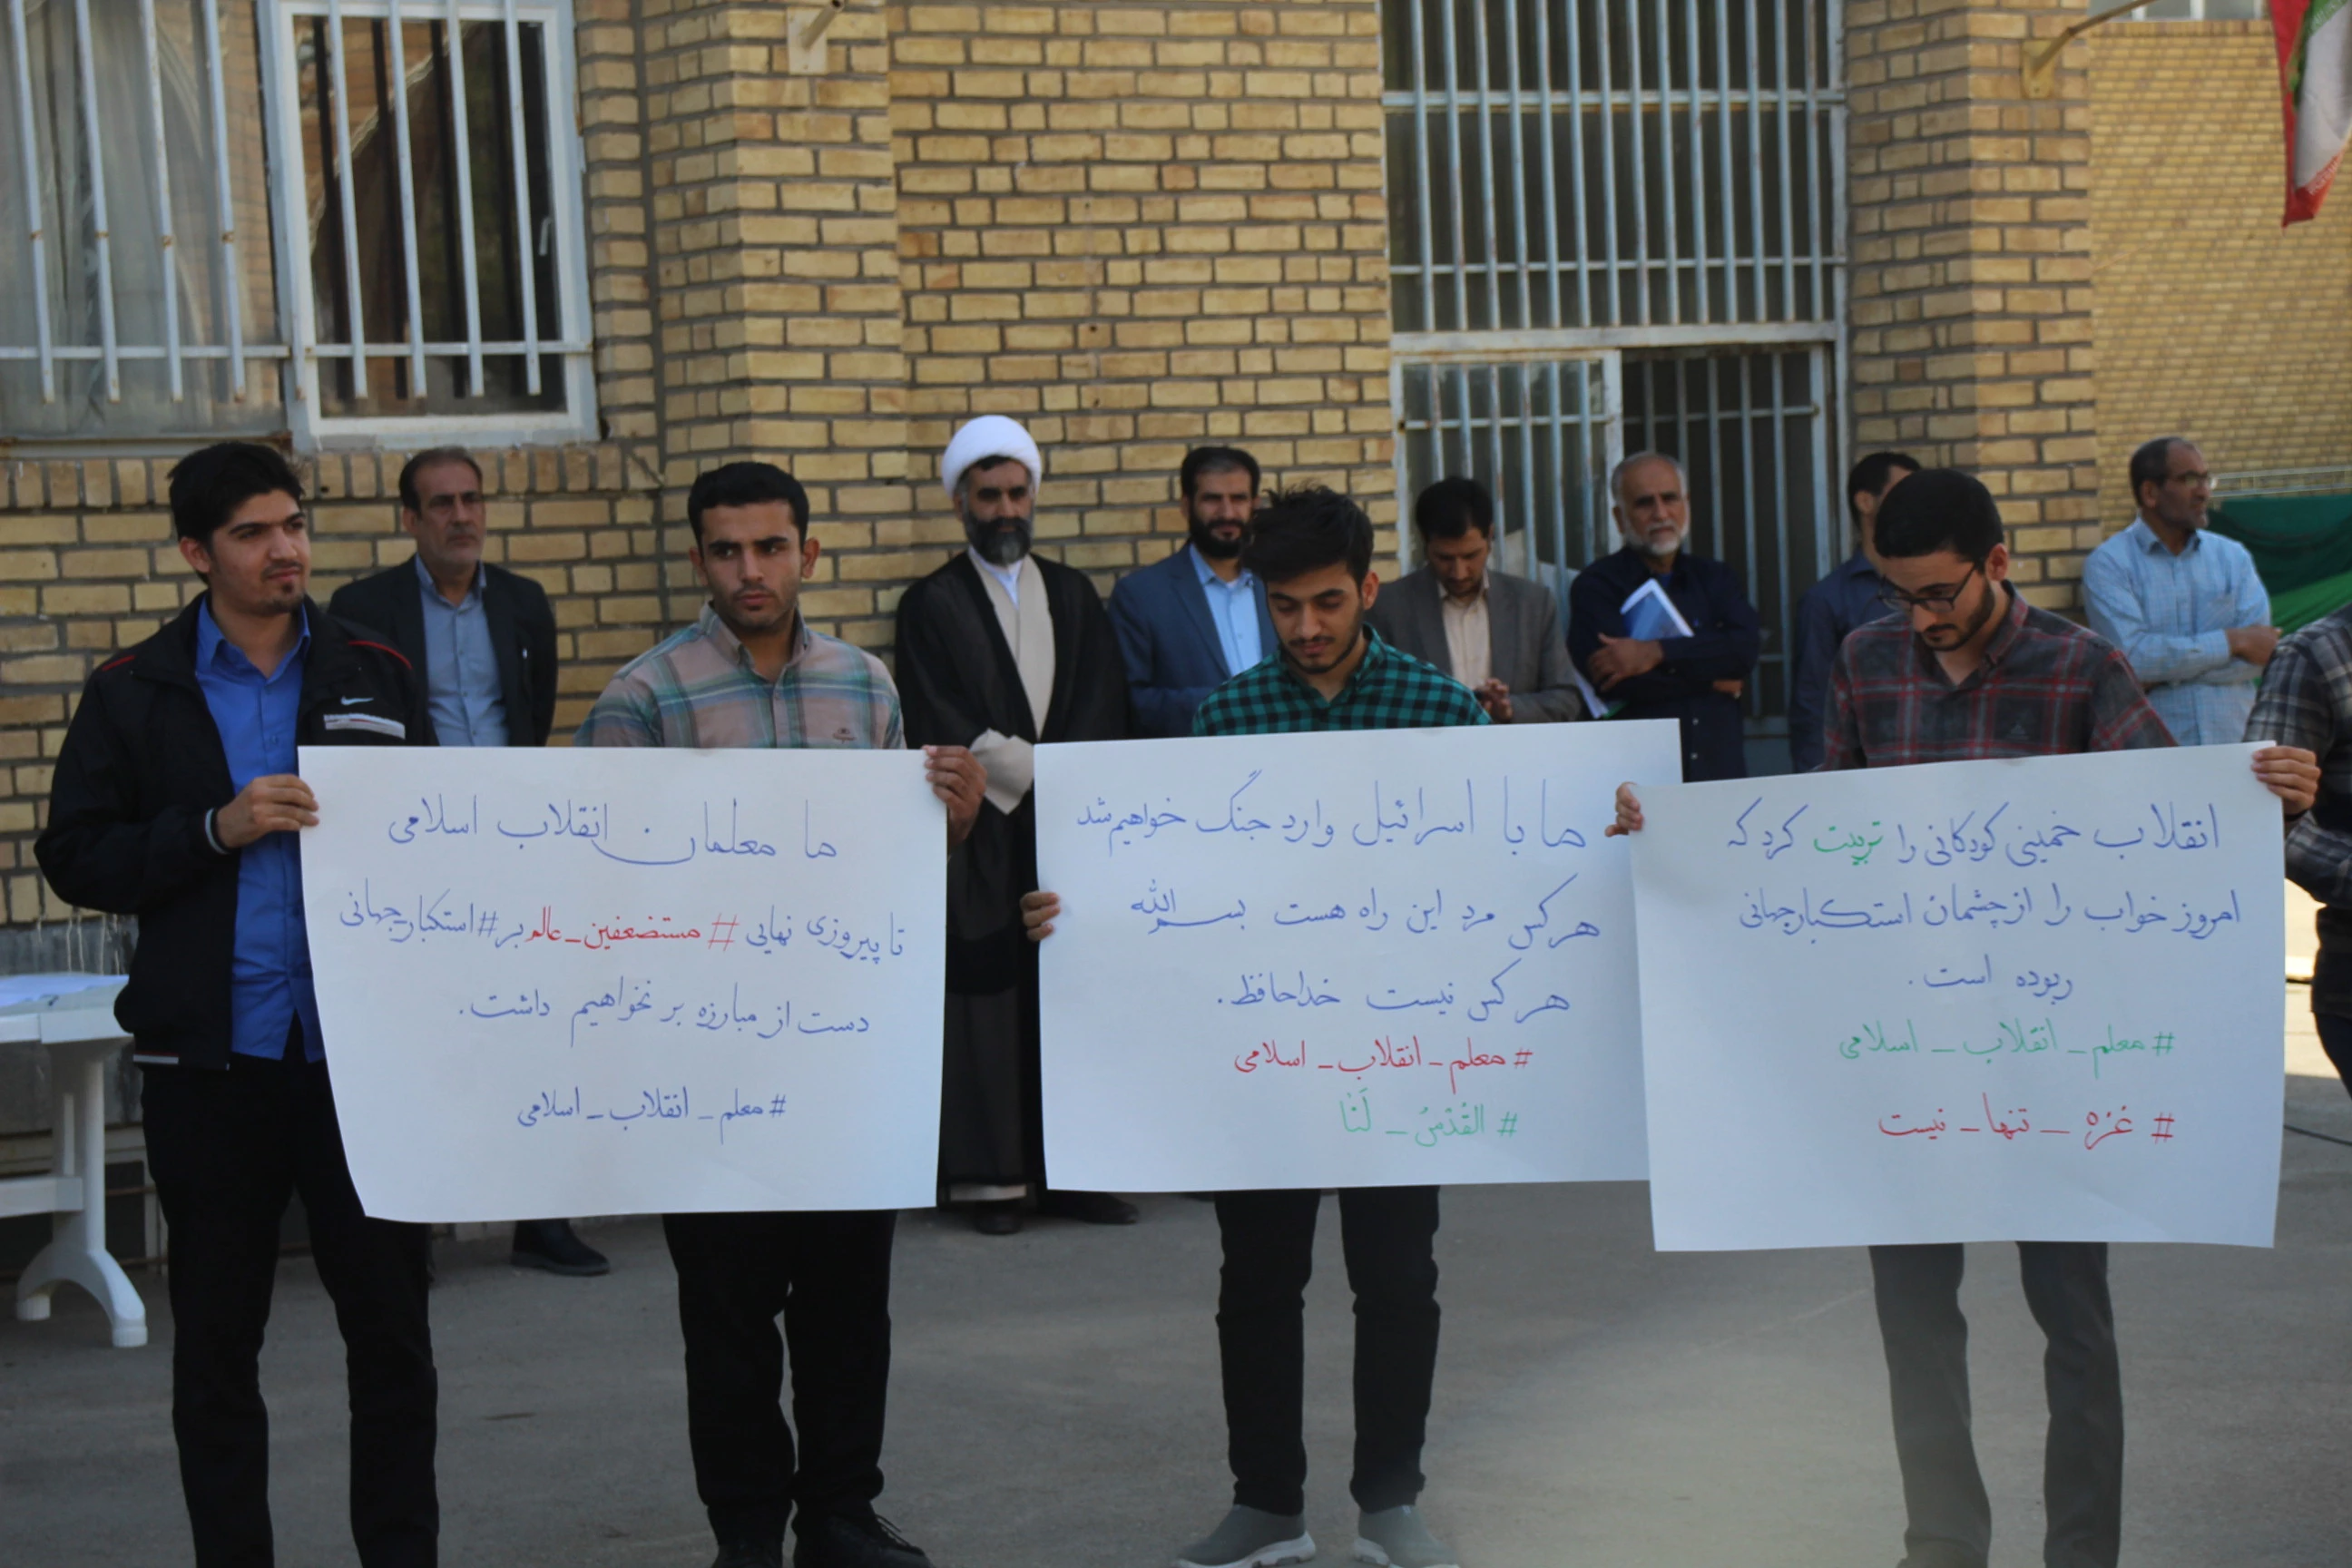 ما معلمان انقلاب اسلامی
تا پیروزی نهایی #مستضعفین_عالم بر #استکبار جهانی
دست از مبارزه بر نخواهیم داشت.
#معلم_انقلاب_اسلامی
ما با اسرائیل وارد جنگ خواهیم شد
هر کس مرد این راه هست بسم الله
هر کس نیست خداحافظ.
#معلم_انقلاب_اسلامی
#القُدْسُ_لَنٰا
انقلاب خمینی کودکانی را تربیت کرد که
امروز خواب را از چشمان استکبار جهانی
ربوده است.
#معلم_انقلاب_اسلامی
#غزه_تنها_نیست